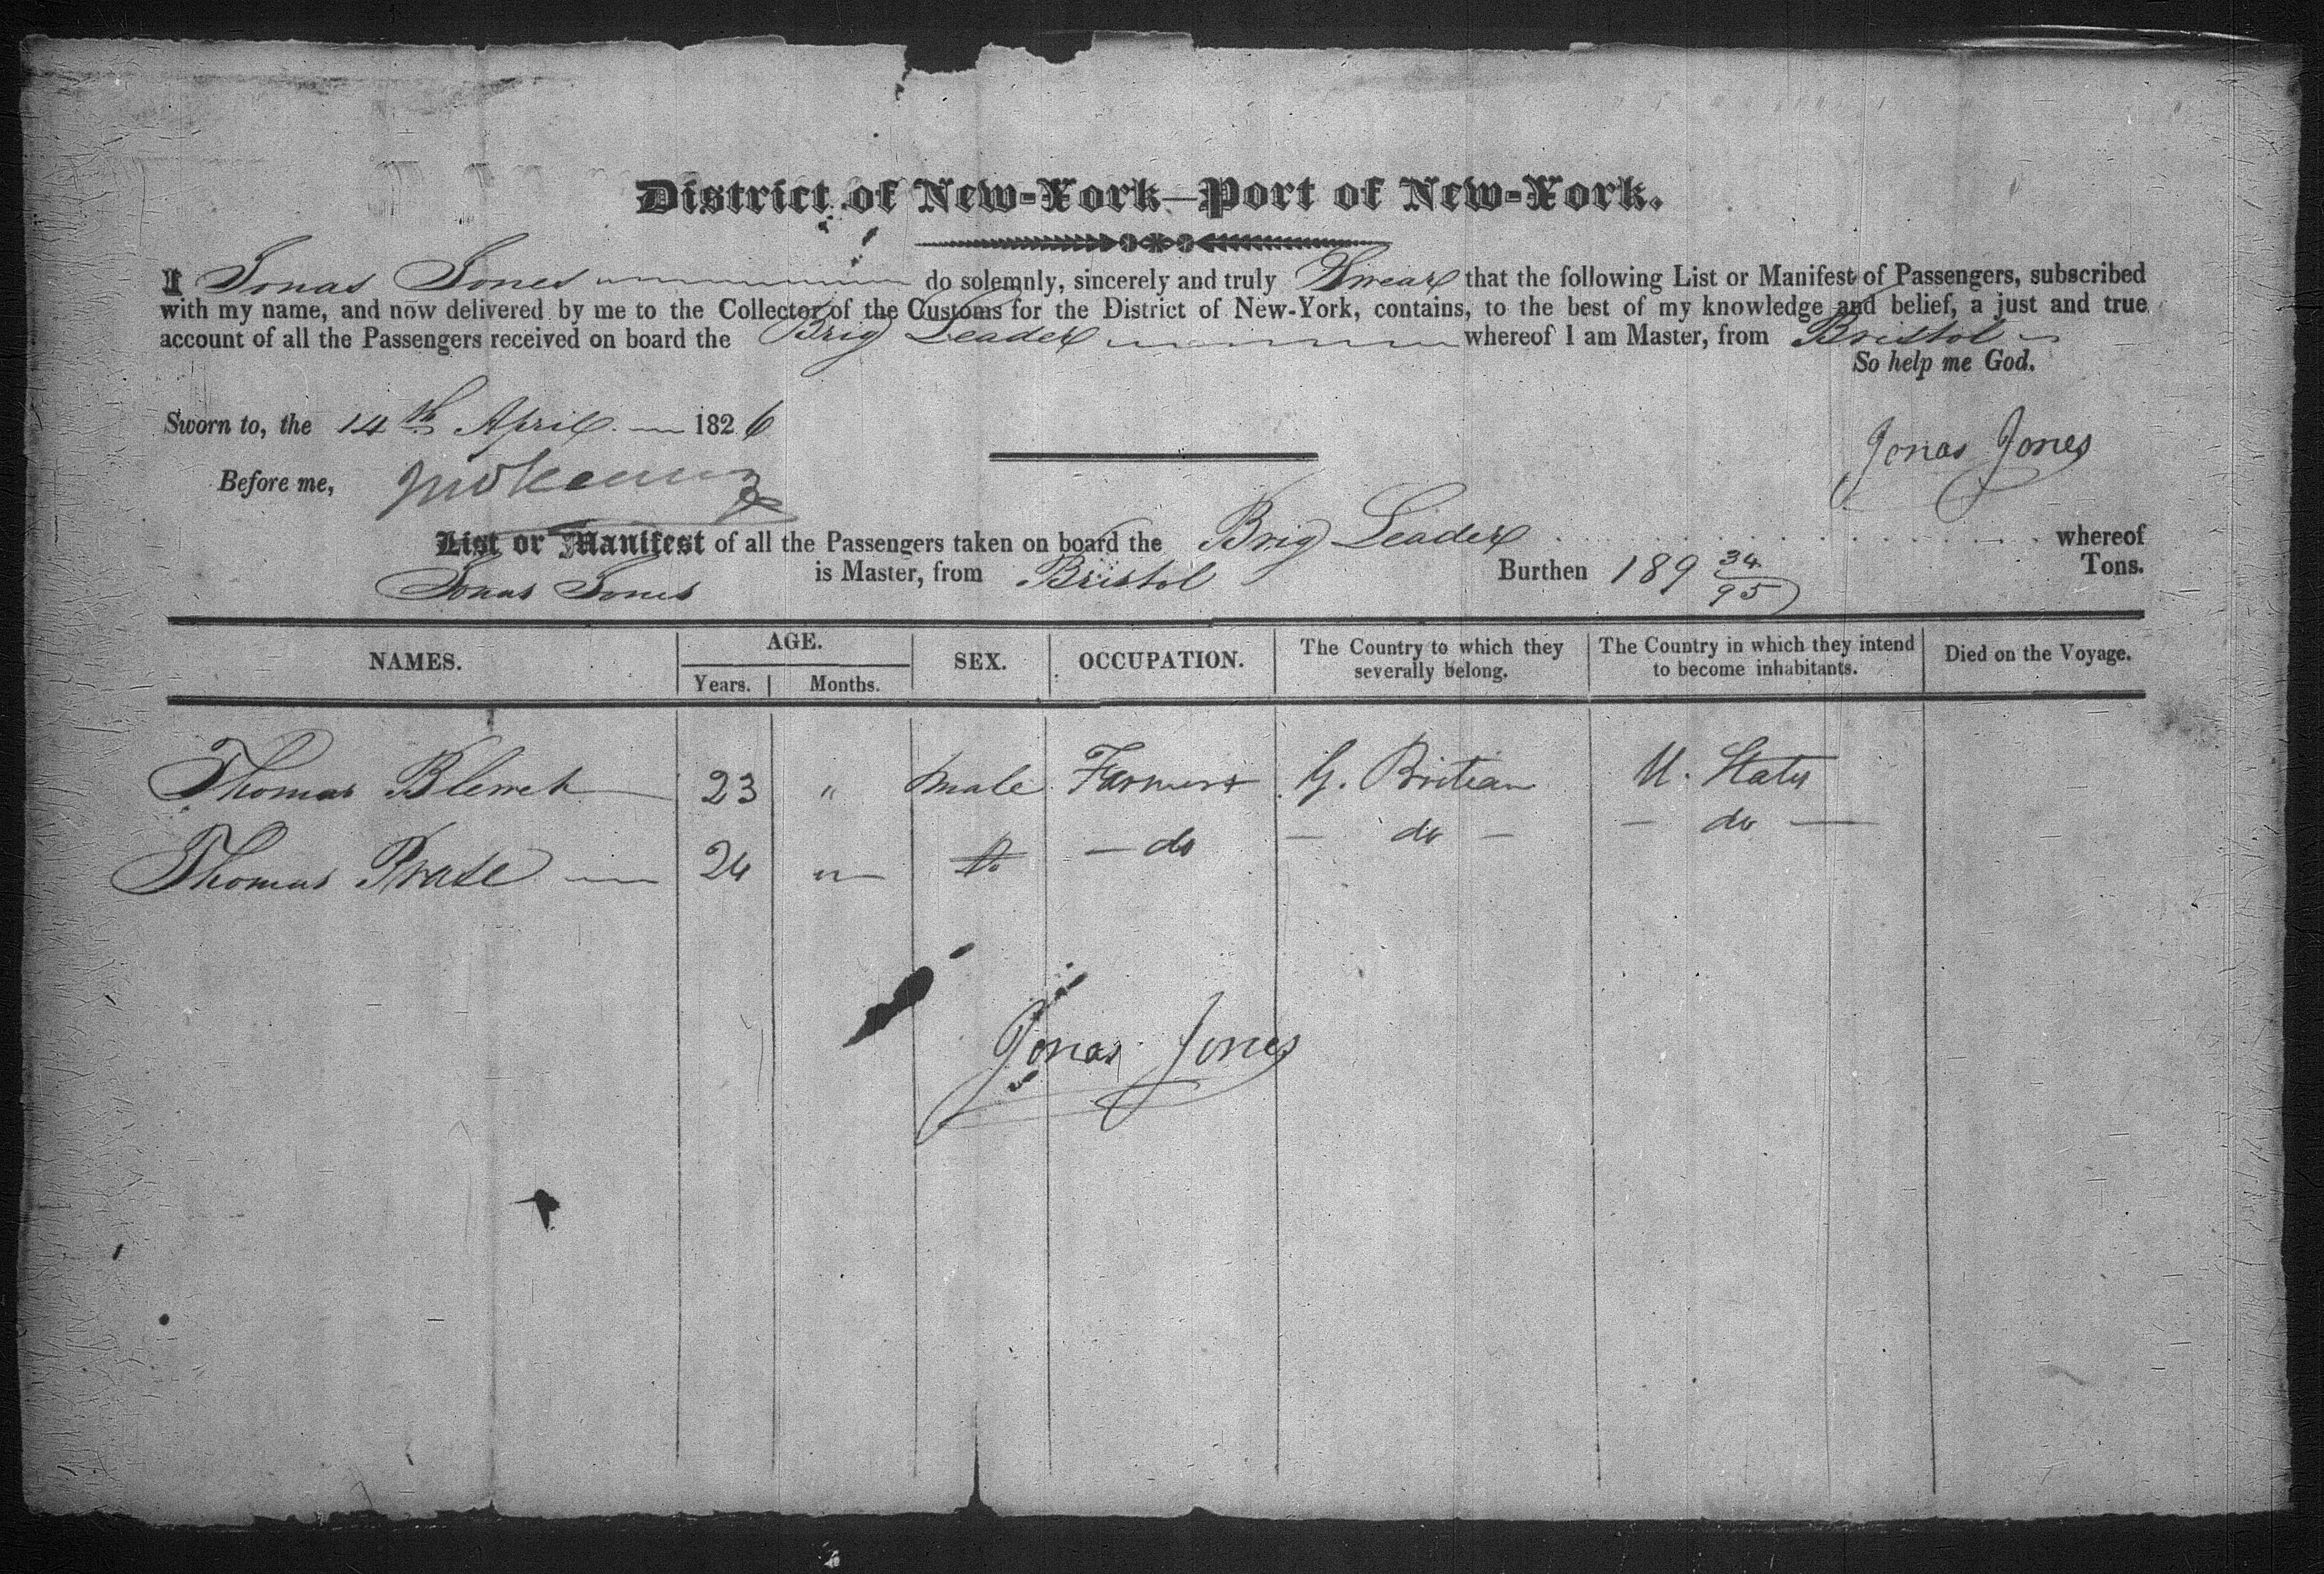 District of New-York—Port of New-York.
I Jonas Jones do solemnly, sincerely and truly Swear that the following List or Manifest of Passengers, subscribed
with my name, and now delivered by me to the Collector of the Customs for the District of New-York, contains, to the best of my knowledge and belief, a just and true
account of all the Passengers received on board the Brig Leader whereof I am Master, from Bristol
So help me God.
Sworn to, the 14th April 1826
Jonas Jones
Before me,
List or Manifest of all the Passengers taken on board the Brig Leader whereof
Jonas Jones is Master, from Bristol Burthen 189 34/95 Tons.
NAMES. AGE. Years. Months. SEX. OCCUPATION. The Country to which they severally belong. The Country in which they intend to become inhabitants. Died on the Voyage.
Thomas 23 " male Farmers G. Britian U. States
Thomas 24 " do do do do
Jonas Jones